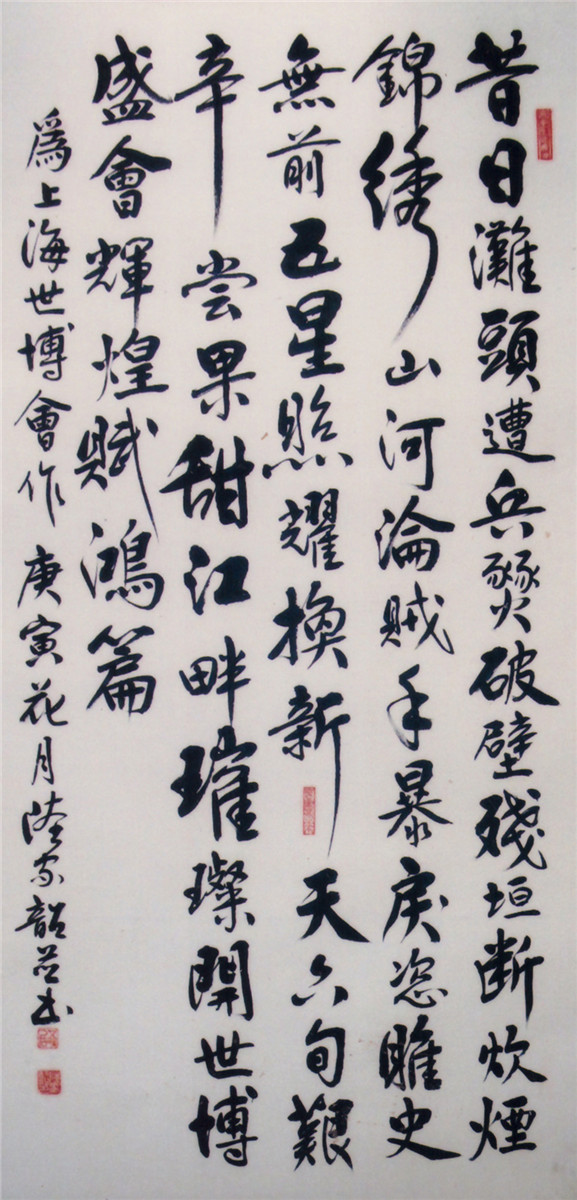 昔日灘頭遭兵燹破壁殘垣断炊煙
錦綉山河淪賊手暴戾恣睢史
無前五星照耀換新天六旬艱
辛尝果甜江畔璀璨開世博
盛會輝煌賦鴻篇
為上海世博會作庚寅花月陸家韶并书